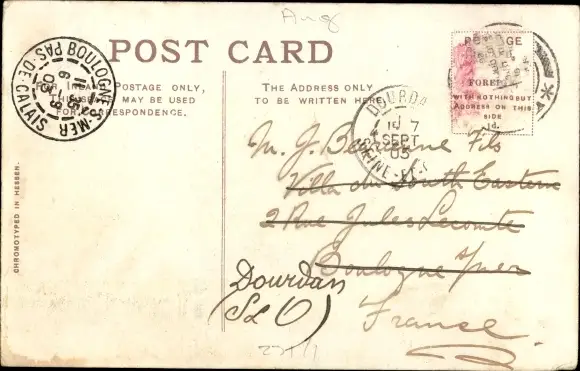 Aug
POST CARD
FOR INLAND POSTAGE ONLY,
THIS SPACE MAY BE USED
FOR CORRESPONDENCE.
THE ADDRESS ONLY
TO BE WRITTEN HERE.
POSTAGE
FOREIGN
WITH NOTHING BUT
ADDRESS ON THIS
SIDE
1d.
BOULOGNE-S-MER
PAS-DE-CALAIS
DOURDAN
7
SEPT
05
SEINE-ET-O
M. J. Fils
Villa du South Eastern
2 Rue Jules Lecomte
Boulogne s/mer
Dourdan
(S & O)
France
CHROMOTYPED IN HESSEN.